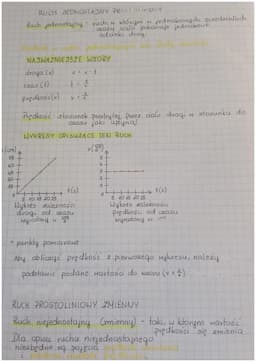 RUCH JEDNOSTAJNY PROSTOLINIOWY
Ruch jednostajny - ruch w którym w jednakowych
ciało pokonuje jednakowe
odcinki drogi.
NAJWAŻNIEJSZE WZORY
droga (s) s = v · t
czas (t) t = s/v
prędkość (v) v = s/t
Prędkość - stosunek przebytej przez ciało drogi w stosunku do
czasu jaki upłynął
WYKRESY OPISUJĄCE TEN RUCH
t(s)
t(s)
Wykres zależności
drogi od czasu
wyrażony w
Wykres zależności
prędkości od czasu
wyrażony w
* punkty pomiarowe
Aby obliczyć prędkość z pierwszego wykresu, należy
podstawić podane wartości do wzoru (v = s/t).
RUCH PROSTOLINIOWY ZMIENNY
Ruch niejednostajny (zmienny) - taki, w którym wartość
prędkości się zmienia
Dla opisu ruchu niejednostajnego
niezbędne są pojęcia